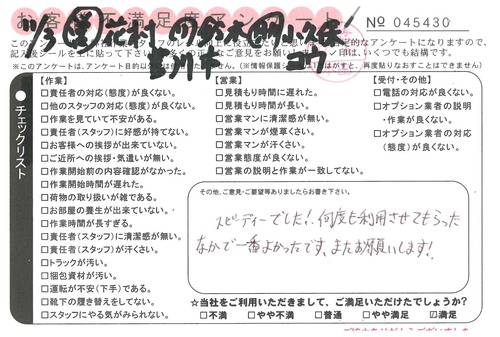 お客様満足
No 045430
【作業】
□責任者の対応(態度)が良くない。
□他のスタッフの対応(態度)が良くない。
□作業を見ていて不安がある。
□責任者(スタッフ)に好感が持てない。
□お客様への挨拶が出来ていない。
□ご近所への挨拶・気遣いが無い。
□作業開始前の内容確認がなかった。
□作業開始時間が遅れた。
□荷物の取り扱いが雑である。
□お部屋の養生が出来ていない。
□作業時間が長すぎる。
□責任者(スタッフ)に清潔感が無い。
□責任者(スタッフ)が汗くさい。
□トラックが汚い。
□梱包資材が汚い。
□運転が不安(下手)である。
□靴下の履き替えをしてない。
□スタッフにやる気がみられない。
【営業】
□見積もり時間に遅れた。
□見積もり時間が長い。
□営業マンに清潔感が無い。
□営業マンが煙草くさい。
□営業マンが汗くさい。
□営業態度が良くない。
□営業の説明と作業が一致してない。
【受付・その他】
□電話の対応が良くない。
□オプション業者の説明
・作業が良くない。
□オプション業者の対応
(態度)が良くない。
チェックリスト
その他、ご意見・ご要望等ありましたらお書き下さい。
スピーディーでした!何度も利用させてもらった
なかで一番よかったです。またお願いします!
☆当社をご利用いただきまして、ご満足いただけたでしょうか?
□不満 □やや不満 □普通 □やや満足 ☑満足